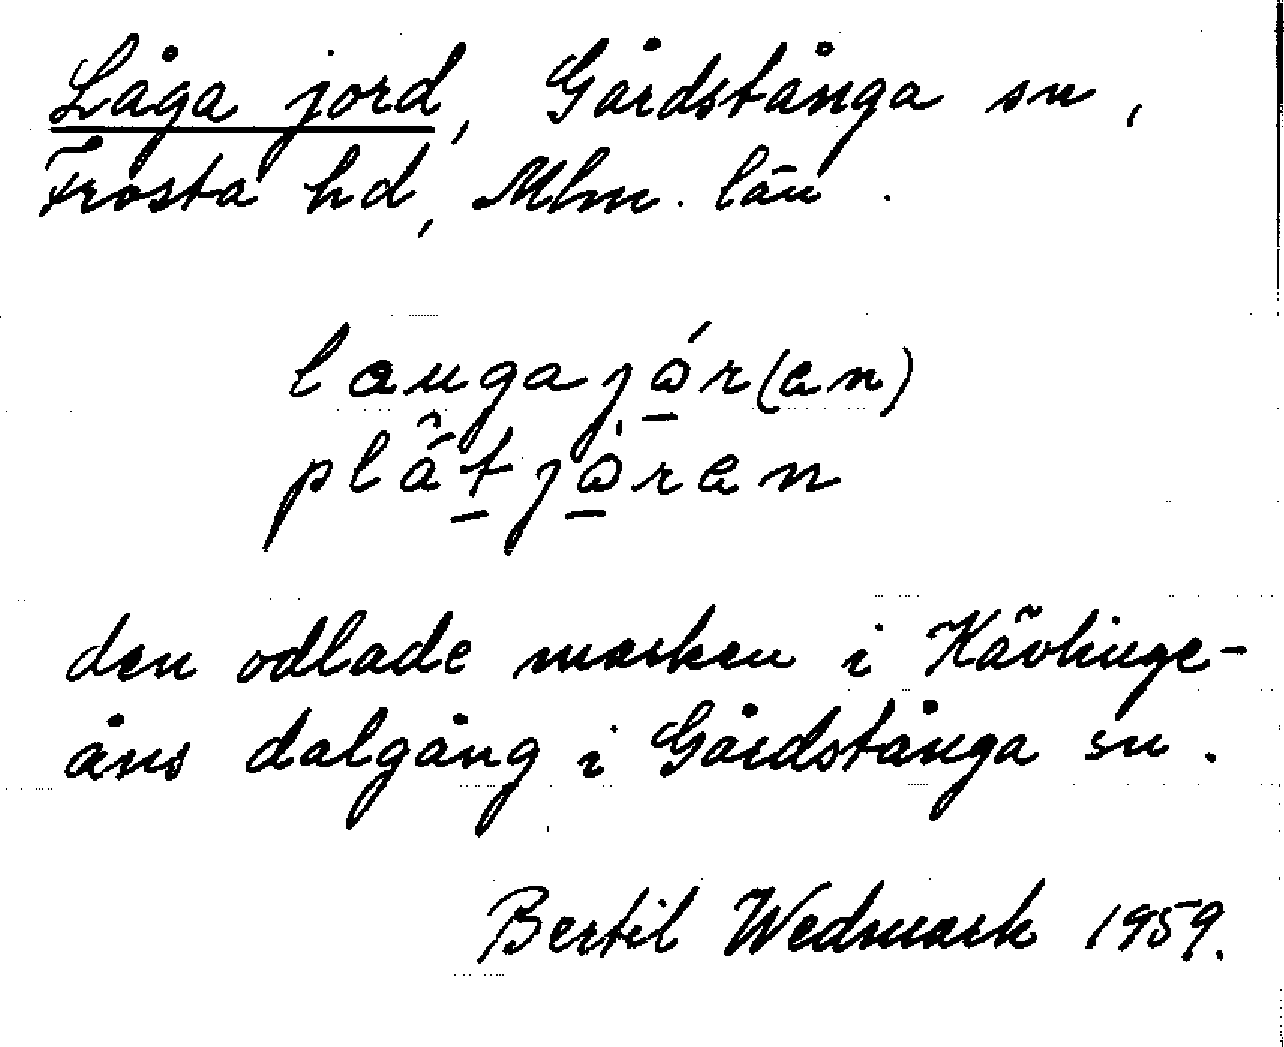 Låga jord, Gårdstånga sn,
Frosta hd, Mlm. län.
laugajǻ̱r(an)
plâṯjå̱ran
den odlade marken i Kävlinge-
åns dalgång i Gårdstånga sn.
Bertil Wedmark 1959.